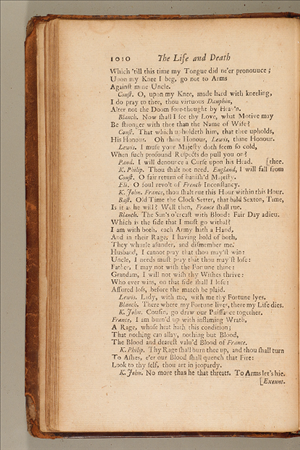 1010 The Life and Death
Which 'till this time my Tongue did ne'er pronounce;
Upon my Knee I beg, go not to Arms
Against mine Uncle.
Const. O, upon my Knee, made hard with kneeling,
I do pray to thee, thou virtuous Dauphin,
Alter not the Doom fore-thought by Heav'n.
Blanch. Now shall I see thy Love, what Motive may
Be stronger with thee than the Name of Wife?
Const. That which upholdeth him, that thee upholds,
His Honour. Oh thine Honour, Lewis, thine Honour.
Lewis. I muse your Majesty doth seem so cold,
When such profound Respects do pull you on?
Pand. I will denounce a Curse upon his Head. [thee.
K. Philip. Thou shalt not need. England, I will fall from
Const. O fair return of banish'd Majesty.
Eli. O foul revolt of French Inconstancy.
K. John. France, thou shalt rue this Hour within this Hour.
Bast. Old Time the Clock-setter, that bald Sexton, Time,
Is it as he will? Well then, France shall rue.
Blanch. The Sun's o'ercast with Blood: Fair Day adieu.
Which is the side that I must go withal?
I am with both, each Army hath a Hand,
And in their Rage, I having hold of both,
They whirle asunder, and dismember me.
Husband, I cannot pray that thou may'st win:
Uncle, I needs must pray that thou may'st lose:
Father, I may not wish the Fortune thine:
Grandam, I will not wish thy Wishes thrive:
Who ever wins, on that side shall I lose:
Assured loss, before the match be plaid.
Lewis. Lady, with me, with me thy Fortune lyes.
Blanch. There where my Fortune lives, there my Life dies.
K. John. Cousin, go draw our Puissance together.
France, I am burn'd up with inflaming Wrath,
A Rage, whose heat hath this condition;
That nothing can allay, nothing but Blood,
The Blood and dearest valu'd Blood of France.
K. Philip. Thy Rage shall burn thee up, and thou shalt turn
To Ashes, e'er our Blood shall quench that Fire:
Look to thy self, thou art in jeopardy.
K. John. No more than he that threats. To Arms let's hie.
[Exeunt.